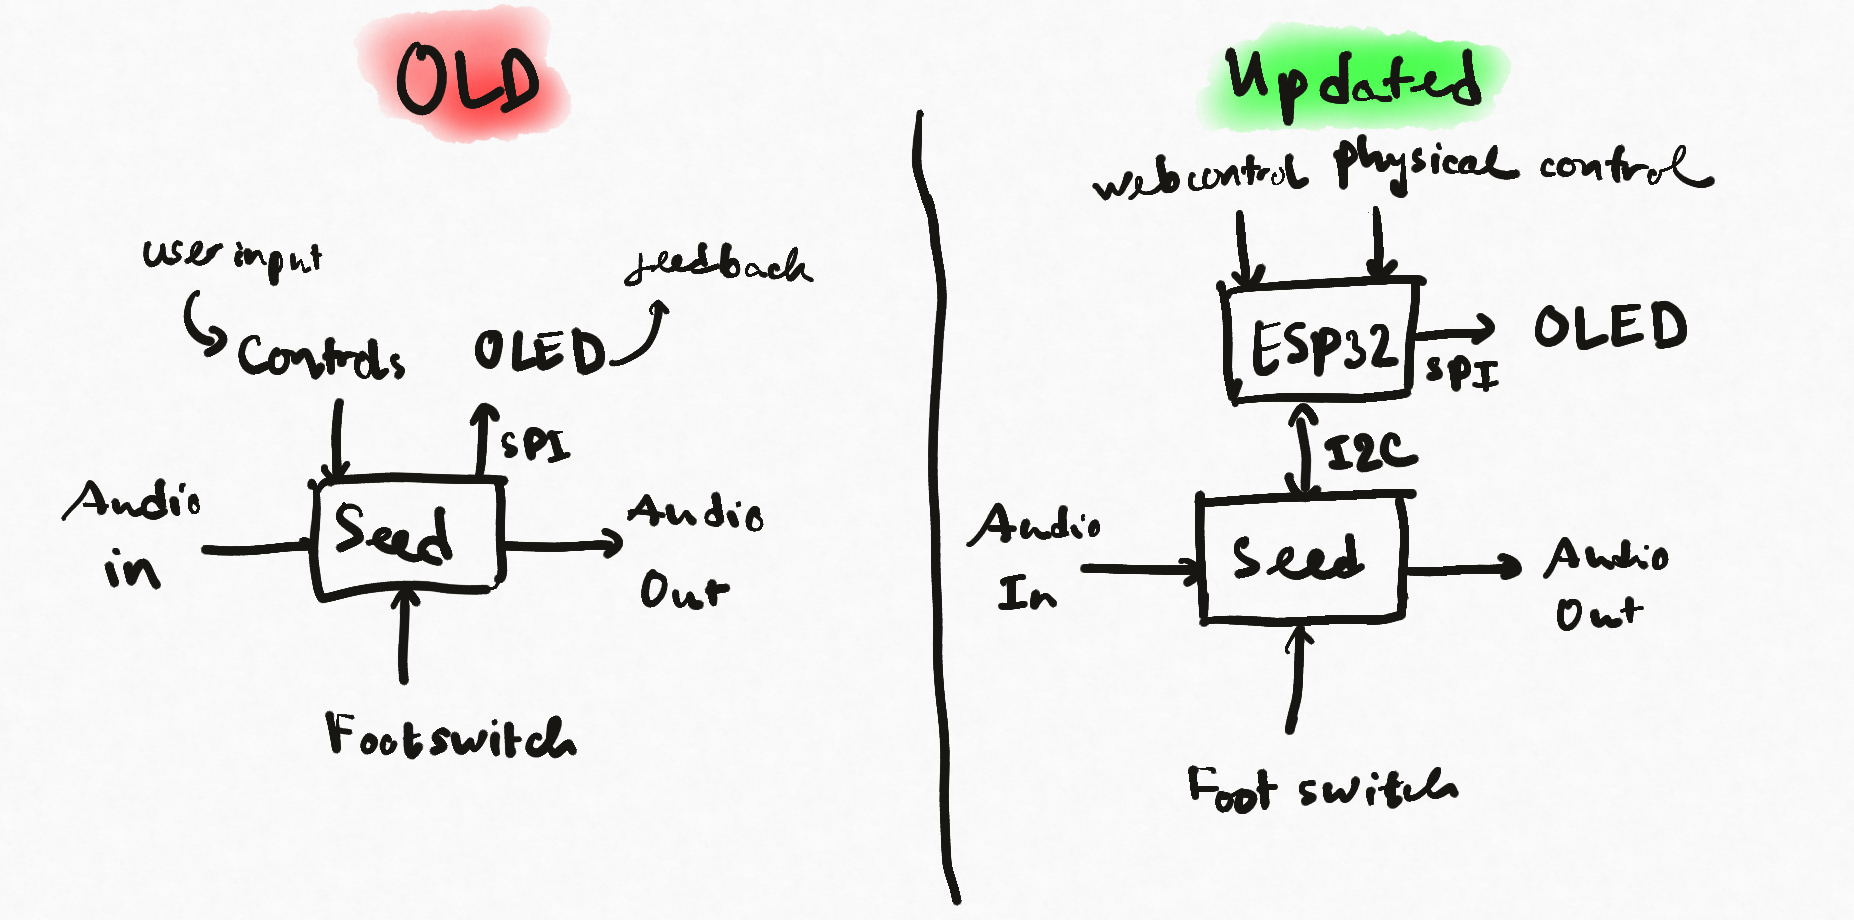 OLD
user input
feedback
Controls
OLED
SPI
Audio
in
Seed
Audio
Out
Footswitch
Updated
webcontrol
physical control
ESP32
SPI
OLED
I2C
Audio
In
Seed
Audio
Out
Foot switch